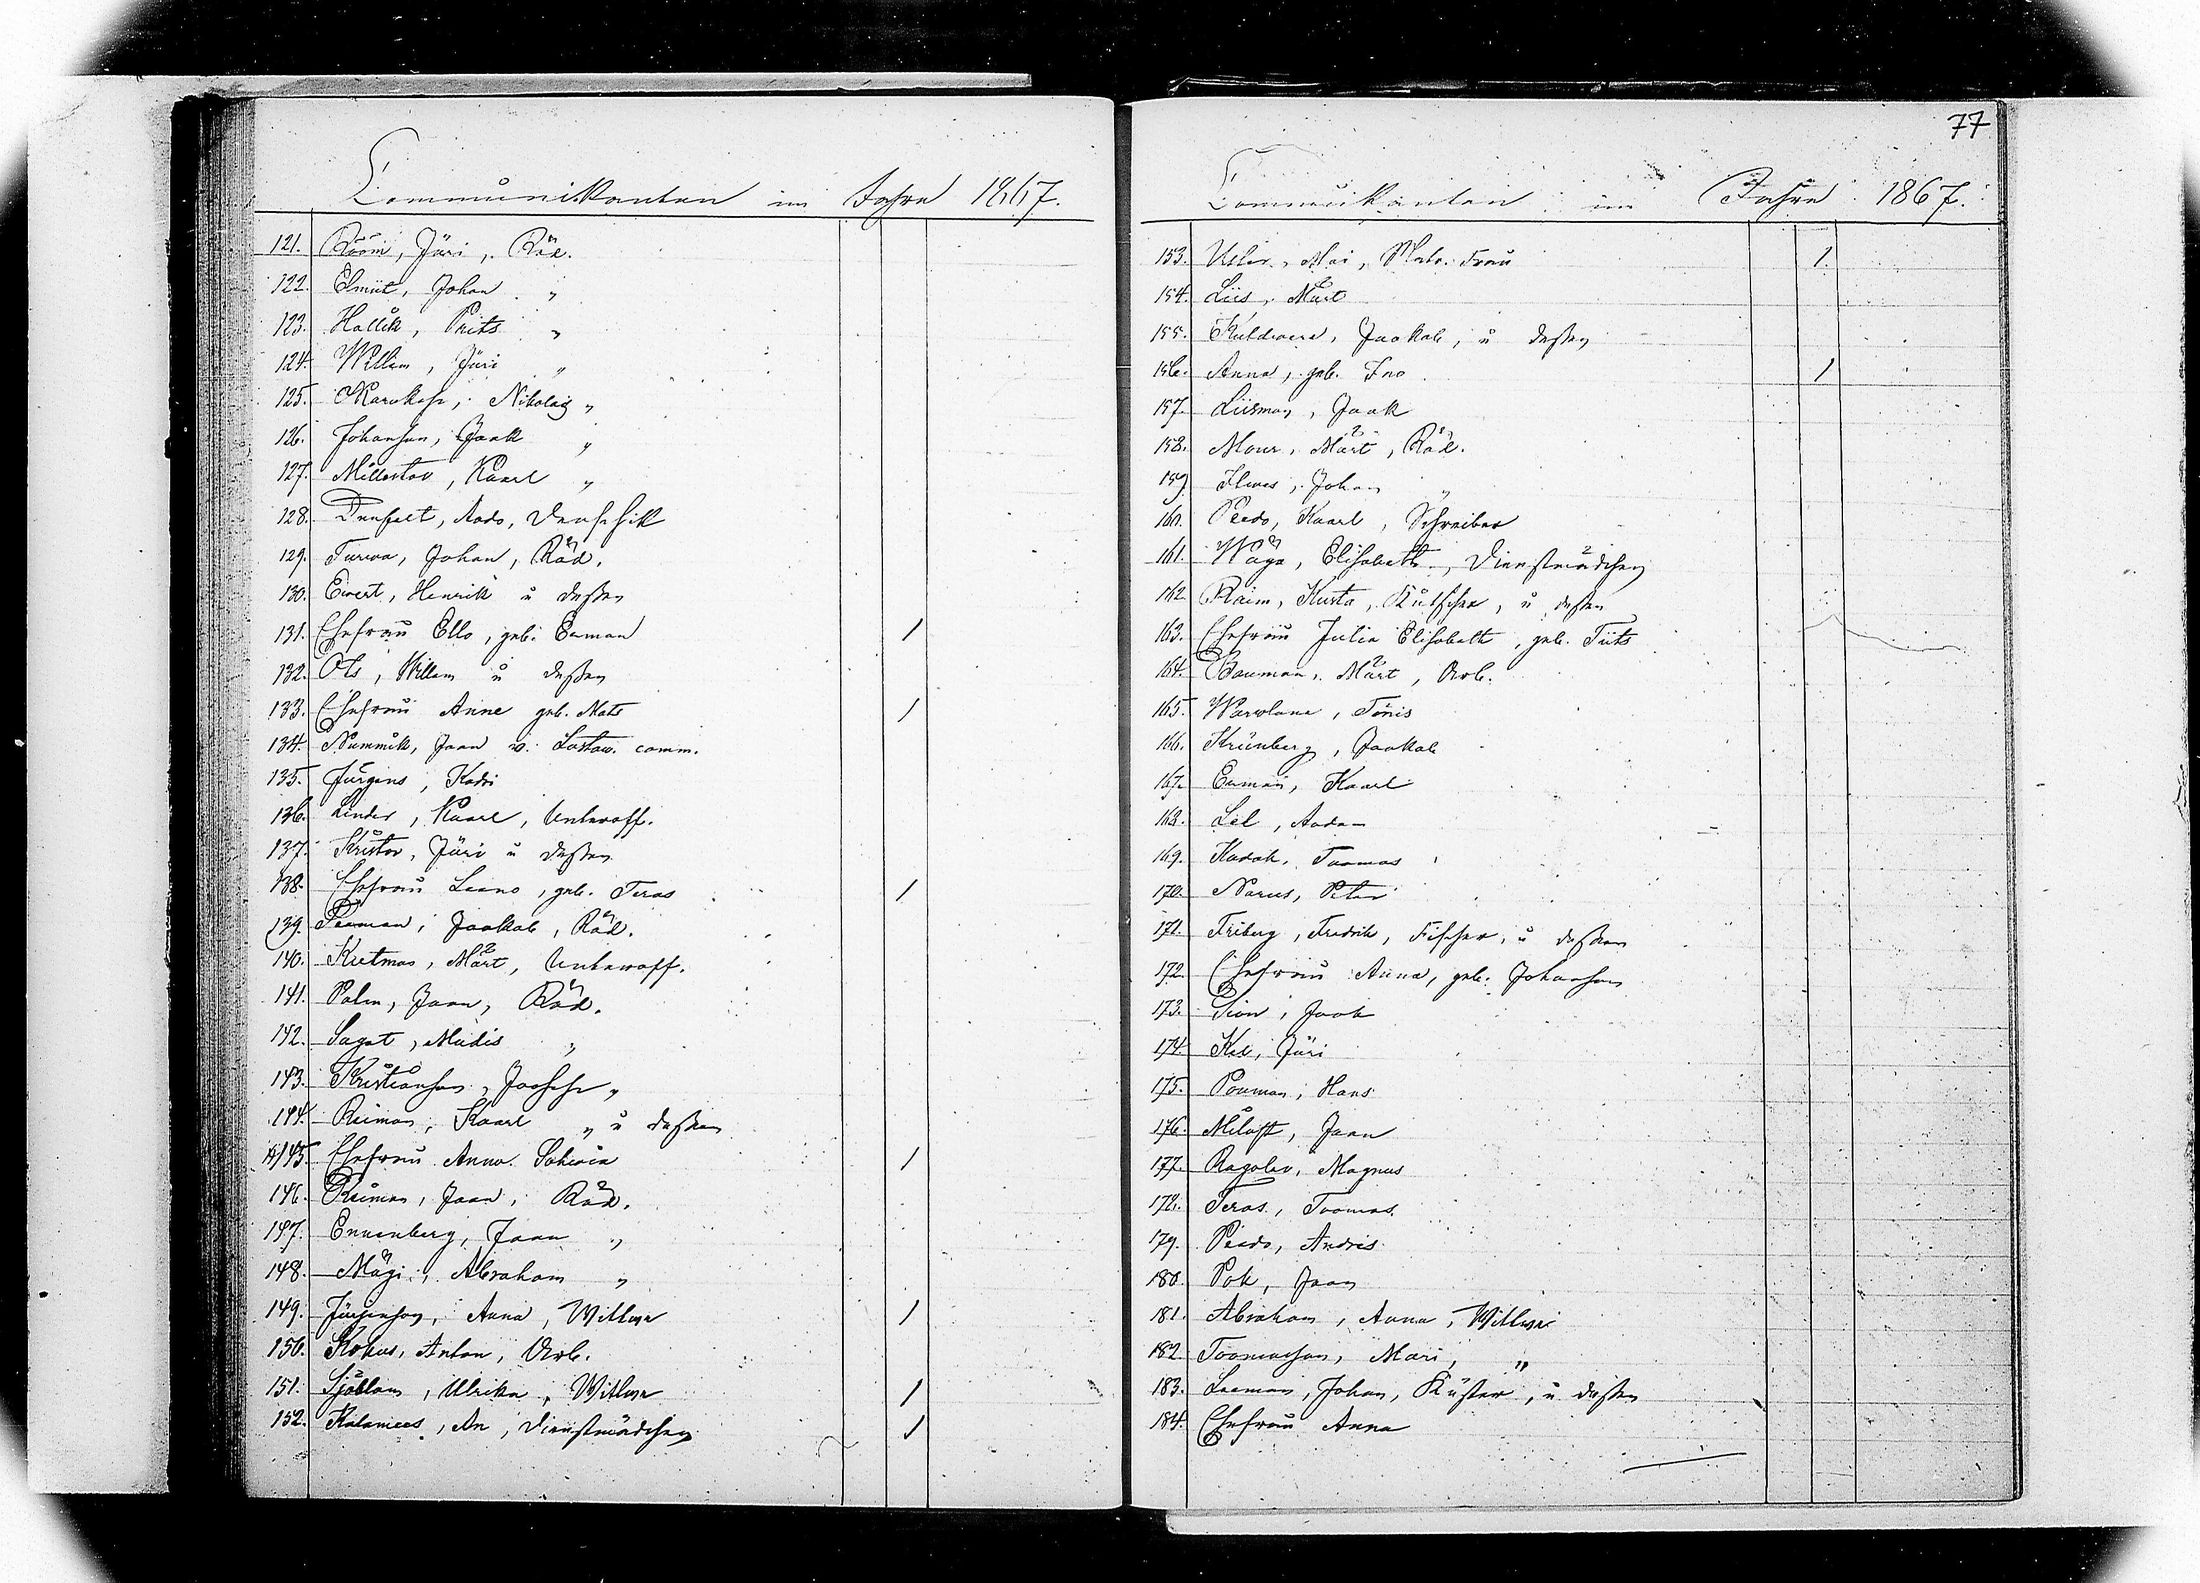 Communikanten im Jahre 1867.
121. Room, Jüri, Räd.
122. Elmüt, Johan "
123. Hallik, Prits "
124. Willem, Jüri "
125. Nikolai "
126. Johanson, Jaak "
127. Kaarl "
128. Aado,
129. Turwa, Johan, Räd.
130. Ewert, Henrik u dessen
131. Ehefrau Ello, geb. Eeman 1
132. Ots, Willem u dessen
133. Ehefrau Anne geb. Mats 1
134. Nummik, Jaan v. comm.
135. Jürgens, Kadri
136. Linder, Kaarl, Unteroff.
137. Kristov, Jüri u dessen
138. Ehefrau Leeno, geb. Teras 1
139. Peeman, Jaakob, Räd.
140. Kütmas, Märt, Unteroff.
141. Palm, Jaan, Räd.
142. Sagat, Madis "
143. Kristianson, Joosep "
144. Reiman, Kaarl " u dessen
145. Ehefrau Anna 1
146. Reiman, Jaan, Räd.
147. Ennenberg, Jaan "
148. Mägi, Abraham "
149. Jürgenson, Anna, Wittwe 1
150. Kokus, Anton, Arb.
151. Sjöblom, Ulrika, Wittwe 1
152. Kalamees, An, Dienstmädchen 1
77
Communikanten im Jahre 1867.
153. Mai, Matr. Frau 1
154. Liis, Märt
155. Kuldwere, Jaakob, u dessen
156. Anna, geb. Ino 1
157. Liisman, Jaak
158. Maur, Märt, Räd.
159. Ilwes, Johan "
160. Peedo, Kaarl, Schreiber
161. Wäga, Elisabeth, Dienstmädchen
162. Raim, Kusta, Kutscher, u dessen
163. Ehefrau Julia Elisabeth, geb. Tiits
164. Bauman, Märt, Arb.
165. Tönis
166. Krünberg, Jaakob
167. Eeman, Kaarl
168. Lil, Aadam
169. Kadak, Toomas
170. Narus, Peter
171. Friberg, Fredrik, Fischer, u dessen
172. Ehefrau Anna, geb. Johanson
173. Sion, Jaak
174. Kel, Jüri
175. Pouman, Hans
176. Jaan
177. Magnus
178. Teras, Toomas
179. Peedo, Andres
180. Pok, Jaan
181. Abraham, Anna, Wittwe
182. Toomason, Mari, "
183. Leeman, Johan, Küster, u dessen
184. Ehefrau Anna